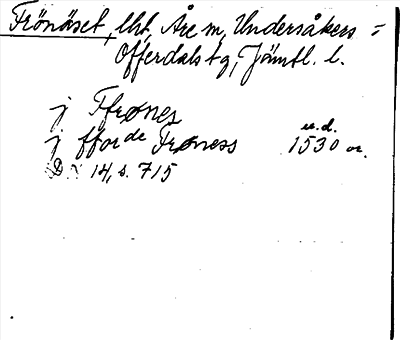 Frönäset, lht, Åre sn, Undersåkers =
Offerdals tg, Jämtl. l.
j Ffrønes
u.d.
j fforde Frøness 1530 or.
D N 14, s. 715